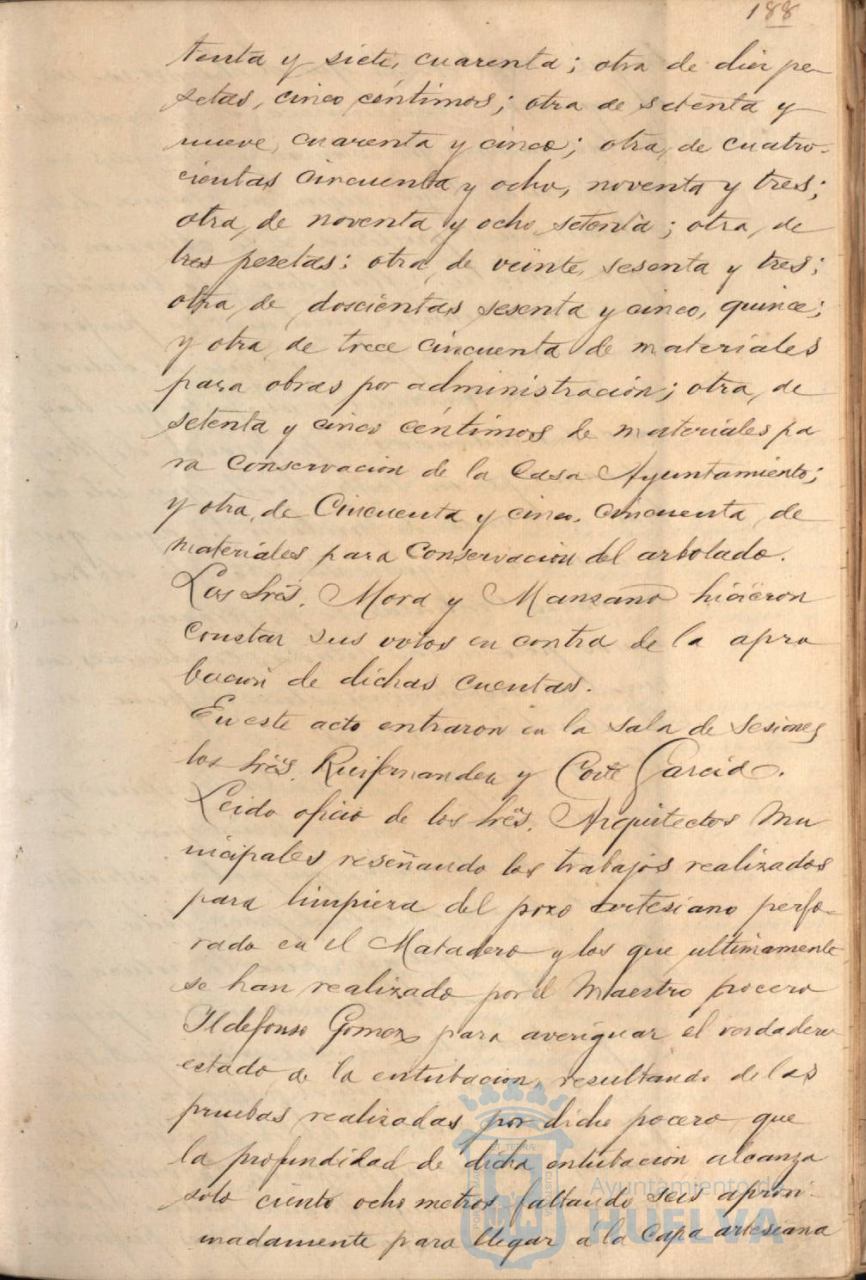 188
tenta y siete, cuarenta; otra de diez pe-
setas, cinco céntimos; otra de setenta y
nueve, cuarenta y cinco; otra, de cuatro-
cientas cincuenta y ocho, noventa y tres;
otra, de noventa y ocho setenta; otra, de
tres pesetas; otra, de veinte, sesenta y tres;
otra, de doscientas sesenta y cinco, quince;
y otra de trece cincuenta de materiales
para obras por administración; otra, de
setenta y cinco céntimos de materiales pa
ra conservacion de la Casa Ayuntamiento;
y otra, de Cincuenta y cinco, cincuenta, de
materiales para conservacion del arbolado.
Los Srès. Mora y Manzano hicieron
constar sus votos en contra de la apro
bacion de dichas cuentas.
En este acto entraron en la sala de sesiones
los Srès. Ruifernandez y Corte Garcia.
Leido oficio de los Srès. Arquitectos Mu
nicipales reseñando los trabajos realizados
para limpieza del pozo artesiano perfo-
rado en el Matadero y los que ultimamente
se han realizado por el Maestro pocero
Ildefonso Gomez para averiguar el verdadero
estado de la entubacion, resultando de las
pruebas realizadas por dicho pocero que
la profundidad de dicha entubacion alcanza
solo ciento ocho metros faltando seis aproxi-
madamente para llegar á la capa artesiana
Ayuntamiento de
HUELVA